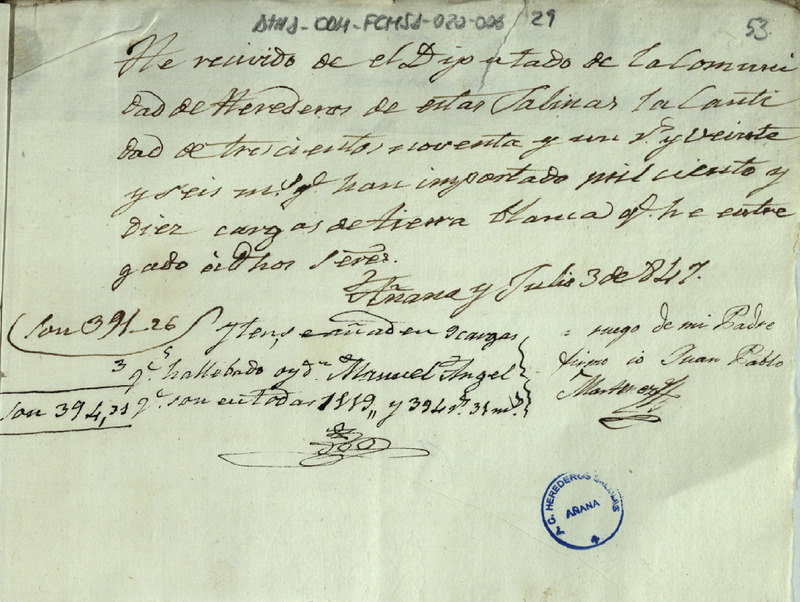 ATHA-DAH-FCHSA-020-006 29
53.
He recivido de el Diputado de la Comuni
dad de Herederos de estas Salinas la Canti
dad de trescientos noventa y un rs. y veinte
y seis ms. q. han importado mil ciento y
diez cargas de tierra blanca q. he entre
gado à dhos Sres.
Añana y Julio 3 de 847.
Son 391-26
Yten, se añaden 9 cargas
3 qs. ha llebado oy dn. Manuel Angel
Son 394,31 qe. son en todas 1119,, y 394 rs. 31 ms.
= ruego de mi Padre
firmo io Juan Pablo
Martinez
A. C. HEREDEROS SALINAS
AÑANA